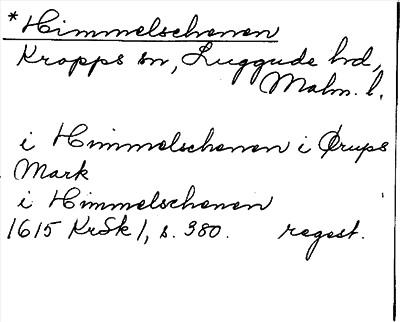 *Himmelschenen
Kropps sn, Luggude hd,
Malm. l.
i Himmelschenen i Ørups
Mark
i Himmelschenen
1615 KrSk 1, s. 380. regest.